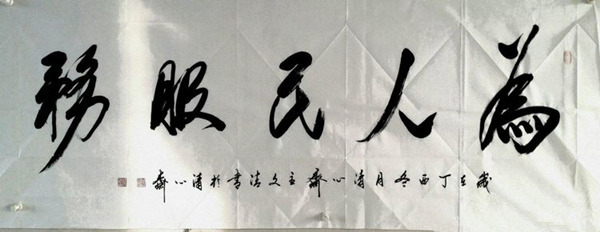 為人民服務
歲在丁酉冬月清心齋主文書於清心齋